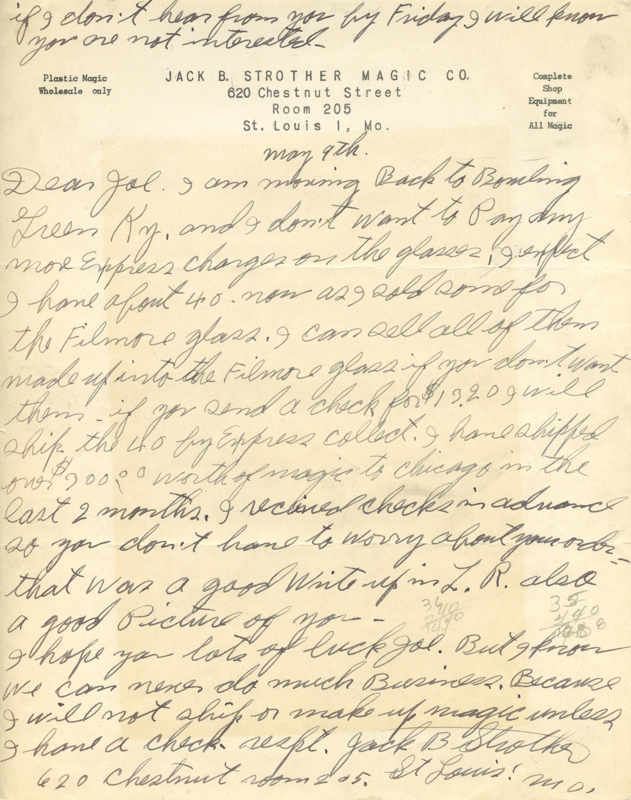 if I don't hear from you by Friday I will know
you are not interested-
Plastic Magic
Wholesale only
JACK B. STROTHER MAGIC CO.
620 Chestnut Street
Room 205
St. Louis 1, Mo.
Complete
Shop
Equipment
for
All Magic
May 9th.
Dear Joe. I am moving Back to Bowling
Green Ky. and I don't want to Pay any
more Express charges on the glasses, I expect
I have about 40. now as I sold some for
the Filmore glass. I can sell all of them
made up into the Filmore glass if you don't want
them. if you send a check for $13.20 I will
ship the 40 by Express collect. I have shipped
over $300.00 worth of magic to chicago in the
last 2 months. I received checks in advance
so you don't have to worry about your order-
that was a good write up in L. R. also
a good Picture of you-
I hope you lots of luck Joe. But I know
we can never do much Business. Because
I will not ship or make up magic unless
I have a check. respt. Jack B Strother
620 Chestnut room 205. St Louis! Mo.